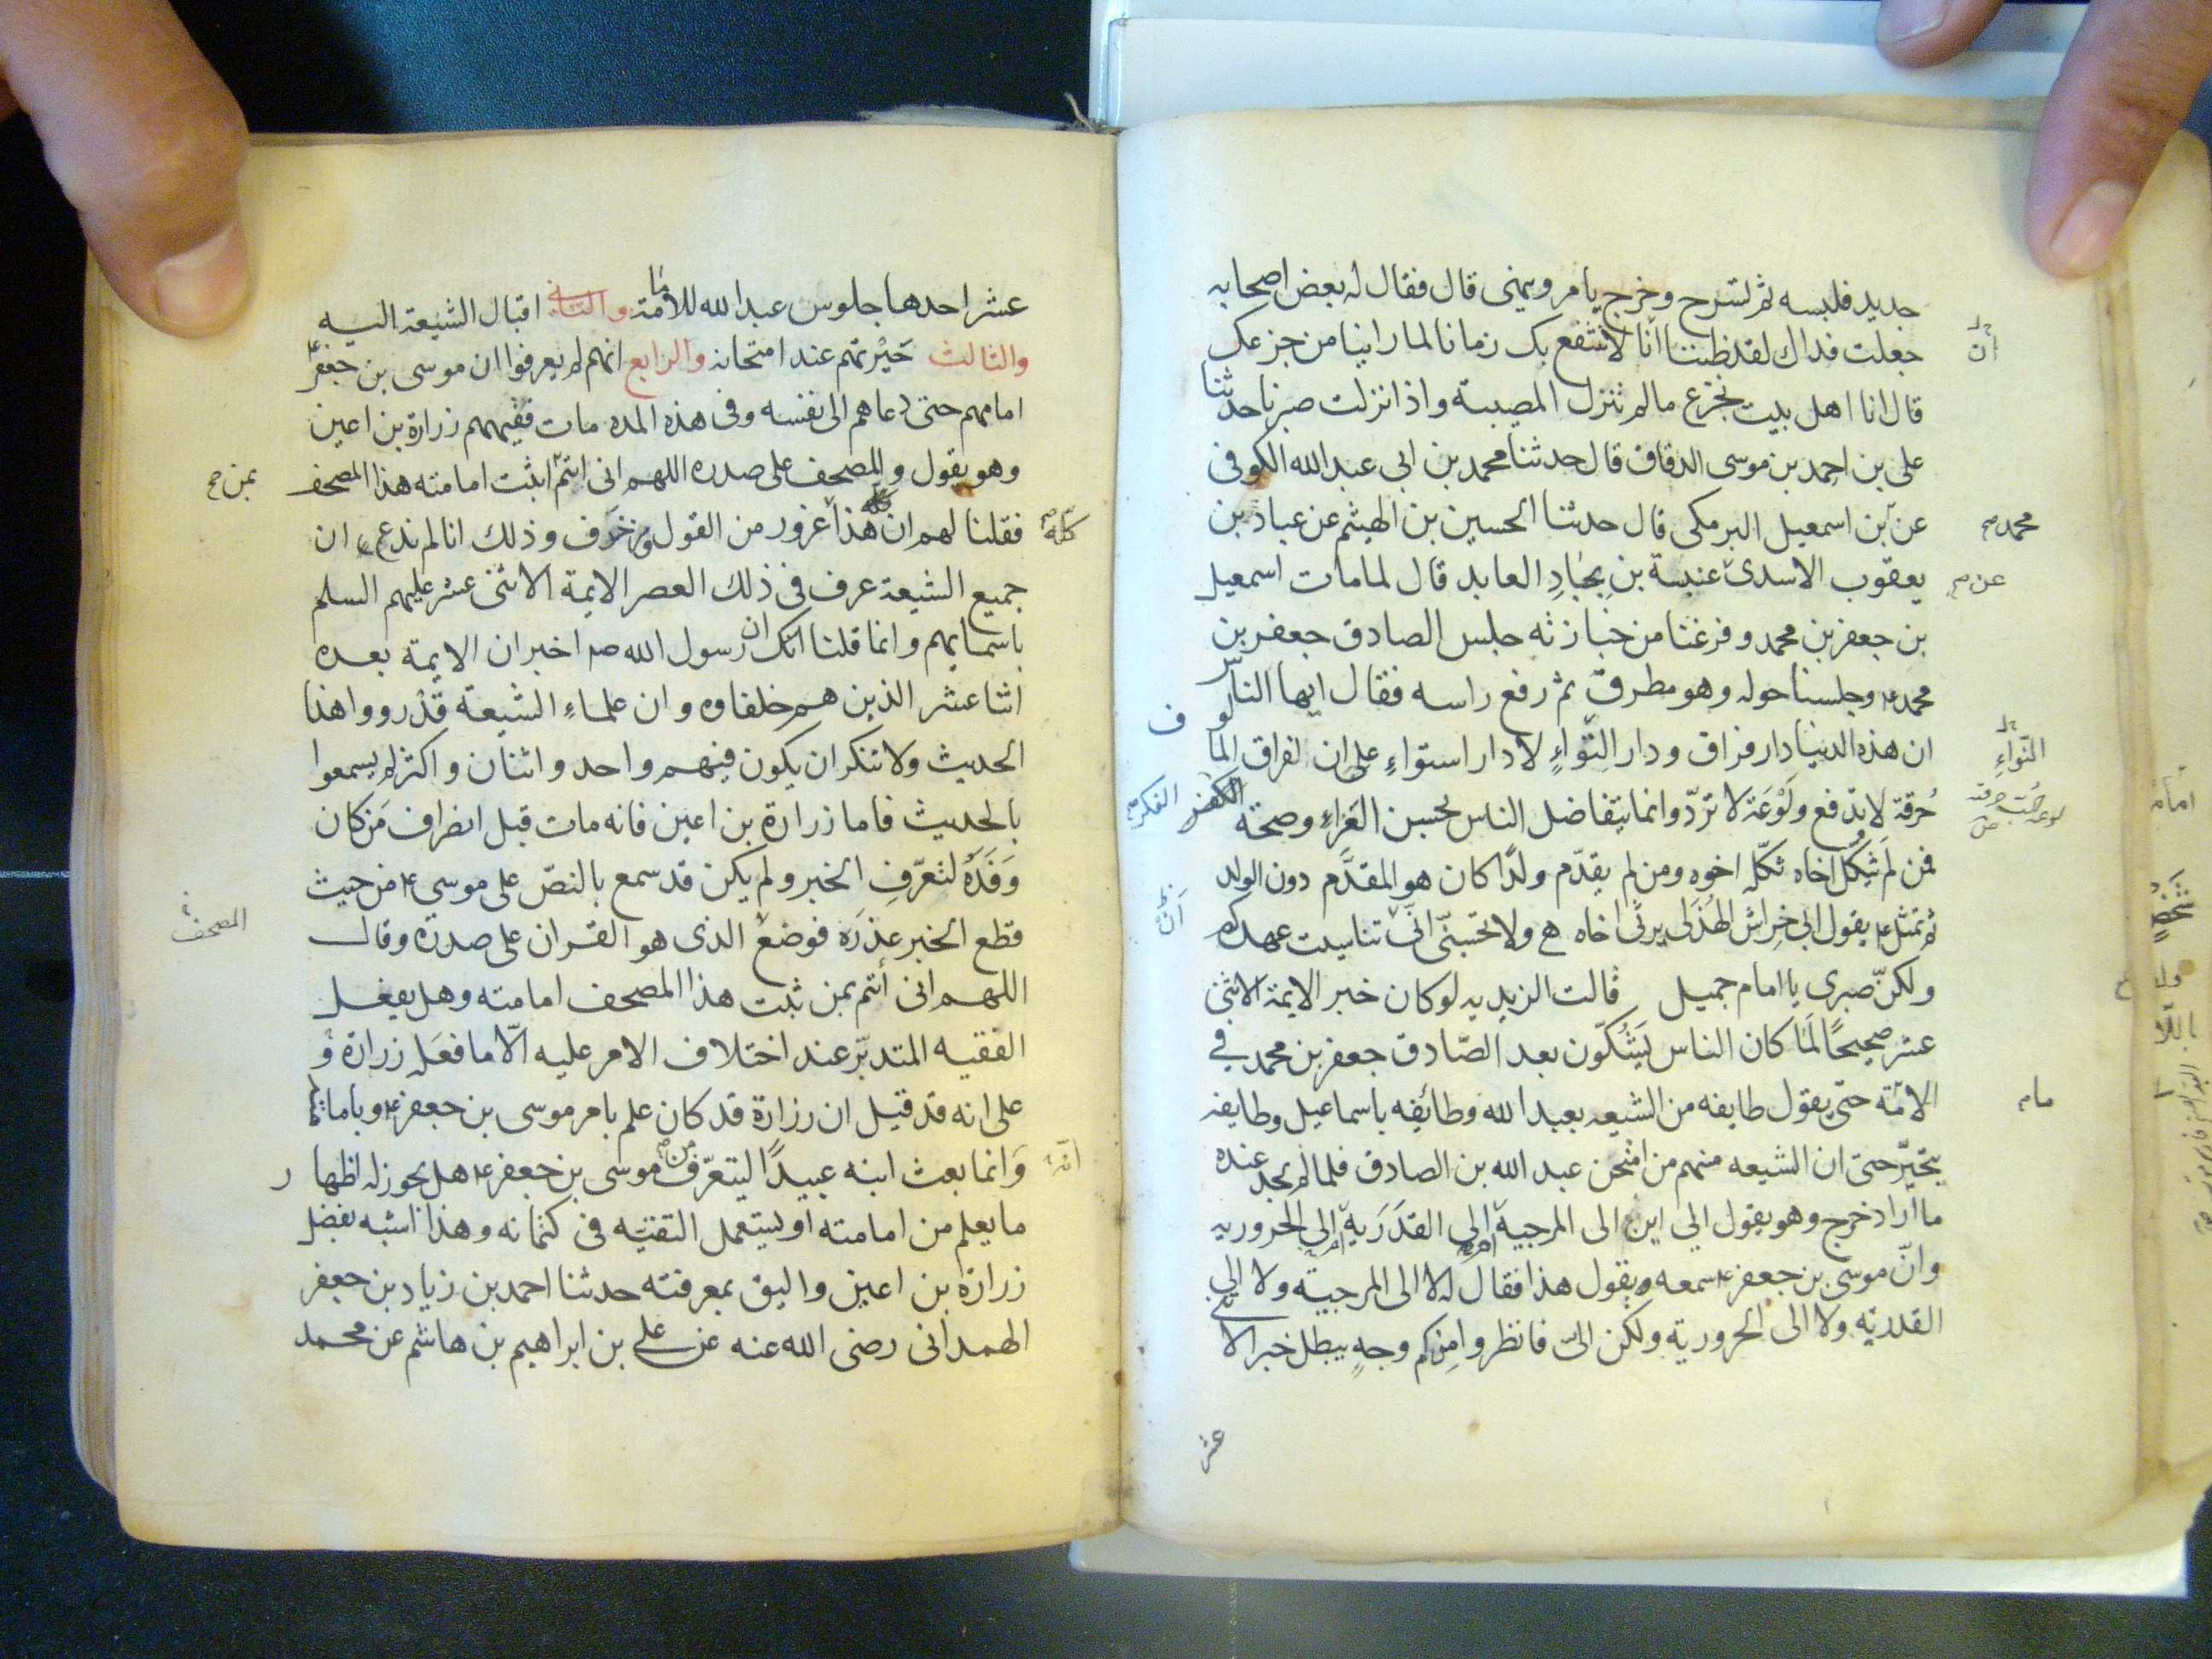 جديد فلبسه ثم تسرح وخرج يامر وينهى قال فقال له بعض اصحابه
جعلت فداك لقد ظننا انا لا ننتفع بك زمانا لما راينا من جزعك
ان
قال انا اهل بيت نجزع مالم تنزل المصيبة واذا نزلت صبرنا حدثنا
على بن احمد بن موسى الدقاق قال حدثنا محمد بن ابى عبد الله الكوفى
عن بن اسمعيل البرمكى قال حدثنا الحسين بن الهيثم عن عباد بن
محمد
يعقوب الاسدى عنبسة بن بجاد العابد قال لما مات اسمعيل
عن
بن جعفر بن محمد وفرغنا من جنازته جلس الصادق جعفر بن
محمد وجلسنا حوله وهو مطرق ثم رفع راسه فقال ايها الناس
ان هذه الدنيا دار فراق ودار التواء لا دار استواء على ان لفراق المالوف
التواء
حرقة لا تدفع ولوعة لا تردّ وانما يتفاضل الناس بحسن العزاء وصحة
الفكر
فمن لم يثكل اخاه ثكله اخوه ومن لم يقدّم ولدًا كان هو المقدَّم دون الولد
ثم تمثل يقول ابى خراش الهذلى يرثى اخاه ولا تحسبنّى انّى تناسيت عهدكم
ان
ولكنّ صبرى يا امام جميل قالت الزيديه لو كان خبر الايمة الاثنى
عشر صحيحًا لما كان الناس يشكّون بعد الصّادق جعفر بن محمد فى
الامة حتّى يقول طايفه من الشيعه بعبد الله وطائفه باسماعيل وطايفه
مام
يتحيّر حتى ان الشيعه منهم من امتحن عبد الله بن الصادق فلما لم يجد عنده
ما اراد خرج وهو يقول الى اين الى المرجية ام الى القدرية ام الى الحروريه
وانّ موسى بن جعفر سمعه ويقول هذا فقال له لا الى المرجية ولا الى
القدرية ولا الى الحرورية ولكن الىّ فانظروا من كم وجهٍ يبطل خبر الاثنى
عشر
عشر احدها جلوس عبد الله للامامة والثانى اقبال الشيعة اليه
والثالث حيرتهم عند امتحانه والرابع انهم لم يعرفوا ان موسى بن جعفر
امامهم حتى دعاهم الى نفسه وفى هذه المده مات فقيههم زرارة بن اعين
وهو يقول والمصحف على صدره اللهم انى ائتم اثبت امامته هذا المصحف
بمن
فقلنا لهم ان هذا غرور من القول وزخرف وذلك انا لم ندع ان
كله
جميع الشيعة عرف فى ذلك العصر الايمة الاثنى عشر عليهم السلم
باسمايهم وانما قلنا ان رسول الله صم اخبر ان الايمة بعده
اثنا عشر الذين هم خلفاوه وان علماء الشيعة قد رووا هذا
الحديث ولا تنكر ان يكون فيهم واحد واثنان واكثر لم يسمعوا
بالحديث فاما زرارة بن اعين فانه مات قبل انصراف من كان
وفده لتعرّف الخبر ولم يكن قد سمع بالنصّ على موسى من حيث
قطع الخبر عذره فوضع الذى هو القران على صدره وقال
المصحف
اللهم انى أئتم بمن ثبت هذا المصحف امامته وهل يفعل
الفقيه المتدبّر عند اختلاف الامر عليه الّا ما فعله زرارة و
على انه قد قيل ان زرارة قد كان علم بامر موسى بن جعفر وبامامته
وانما بعث ابنه عبيدًا ليتعرّف من موسى بن جعفر هل يجوز له اظهار
انه
ما يعلم من امامته او يستعمل التقية فى كتمانه وهذا اشبه بفضل
زرارة بن اعين واليق بمعرفته حدثنا احمد بن زياد بن جعفر
الهمدانى رضى الله عنه عن على بن ابراهيم بن هاشم عن محمد